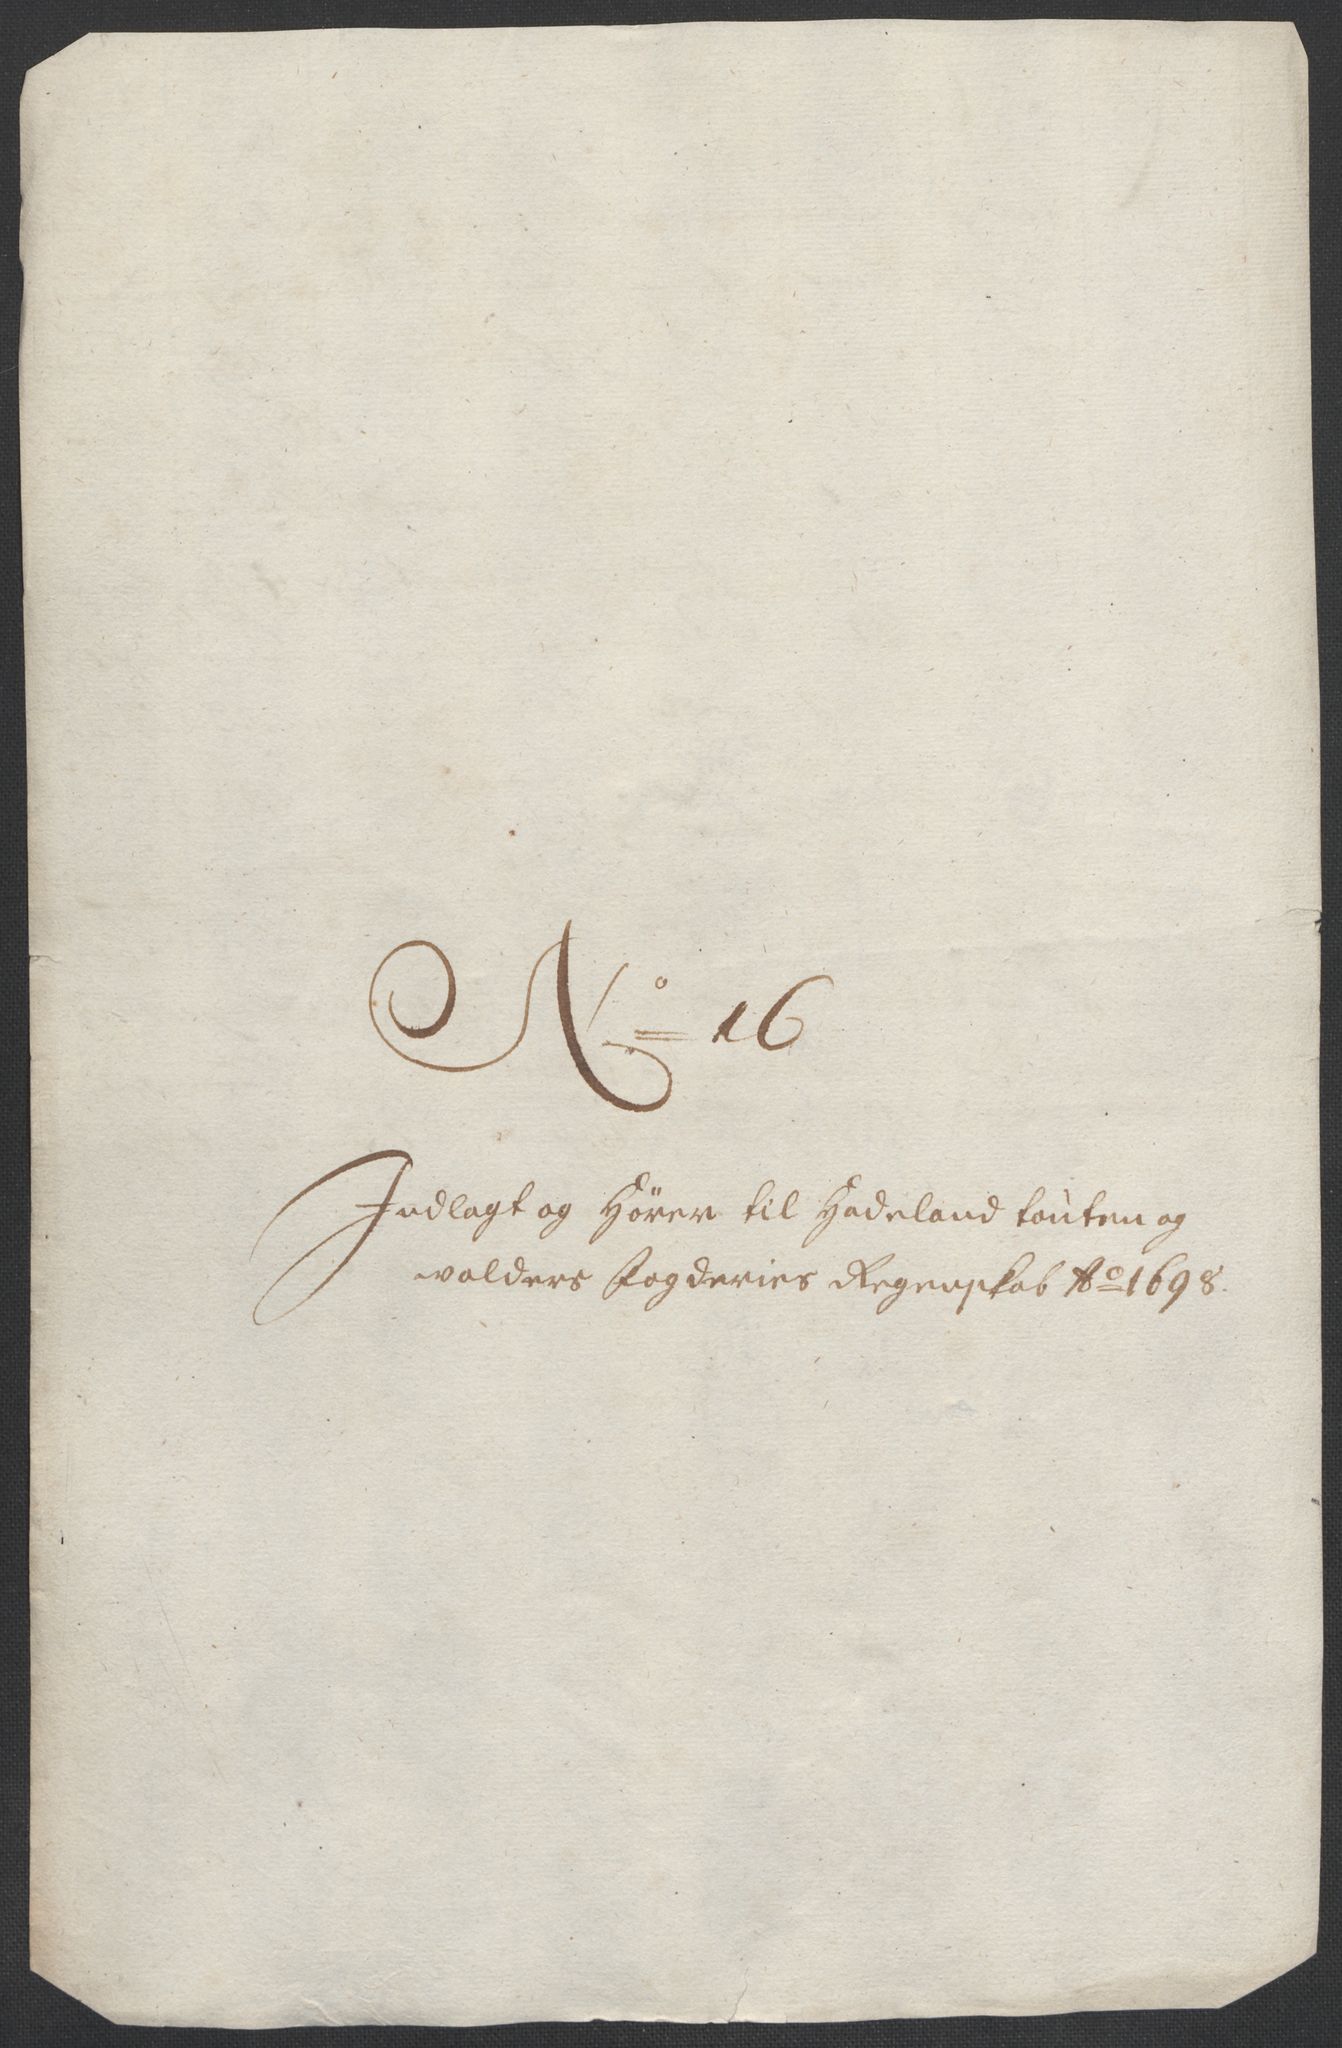 No 16
Indlagt og Hörer til Hadeland toùten og
walders Fogderies Regenskab Ao 1698.